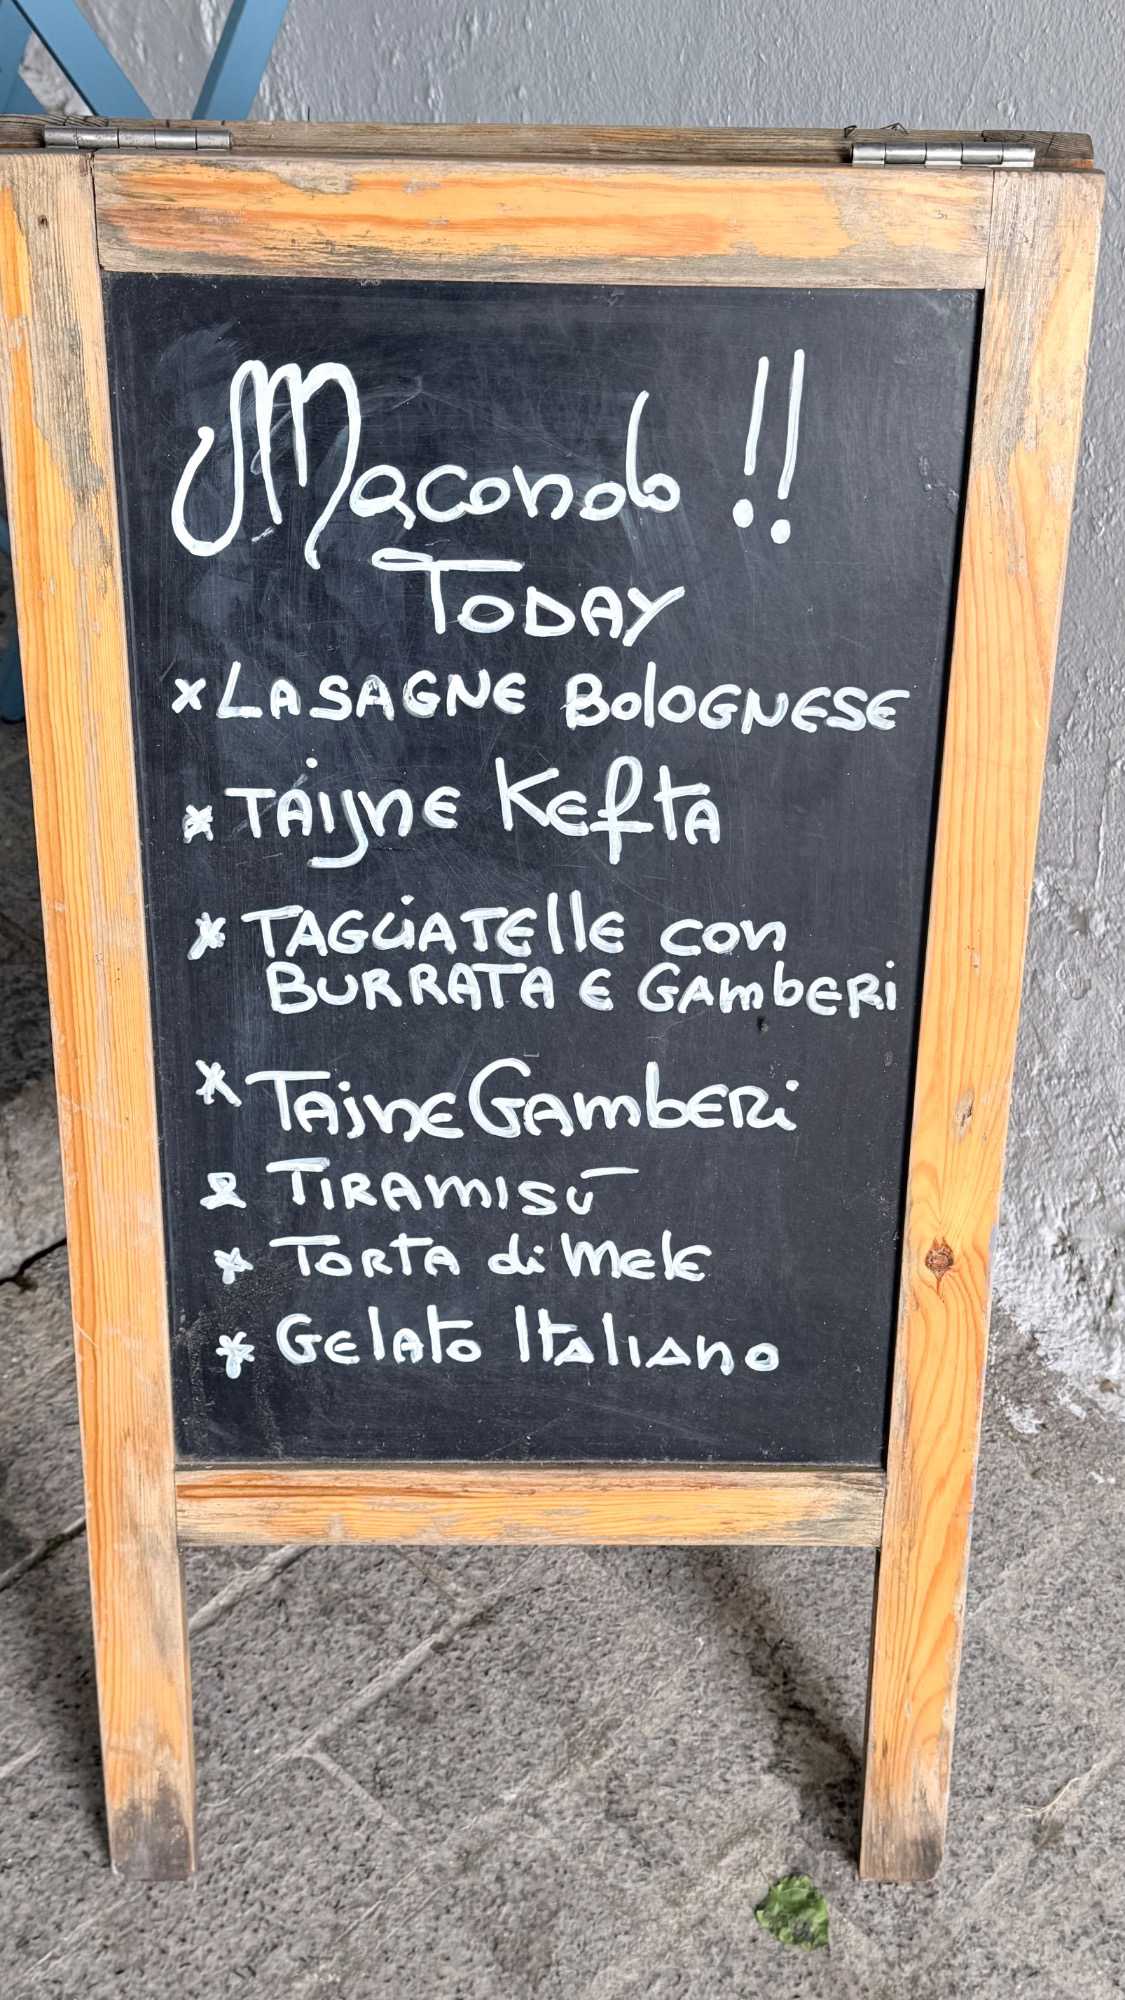 Macondo !!
TODAY
* LASAGNE BOlOGNESE
* TAijNE KEftA
* TAGLiATEllE CON
BURRATA E GAMbERi
* TAjNE GAMbERi
* TiRAMiSÙ
* TORTA di MElE
* GElATO ITAliANO